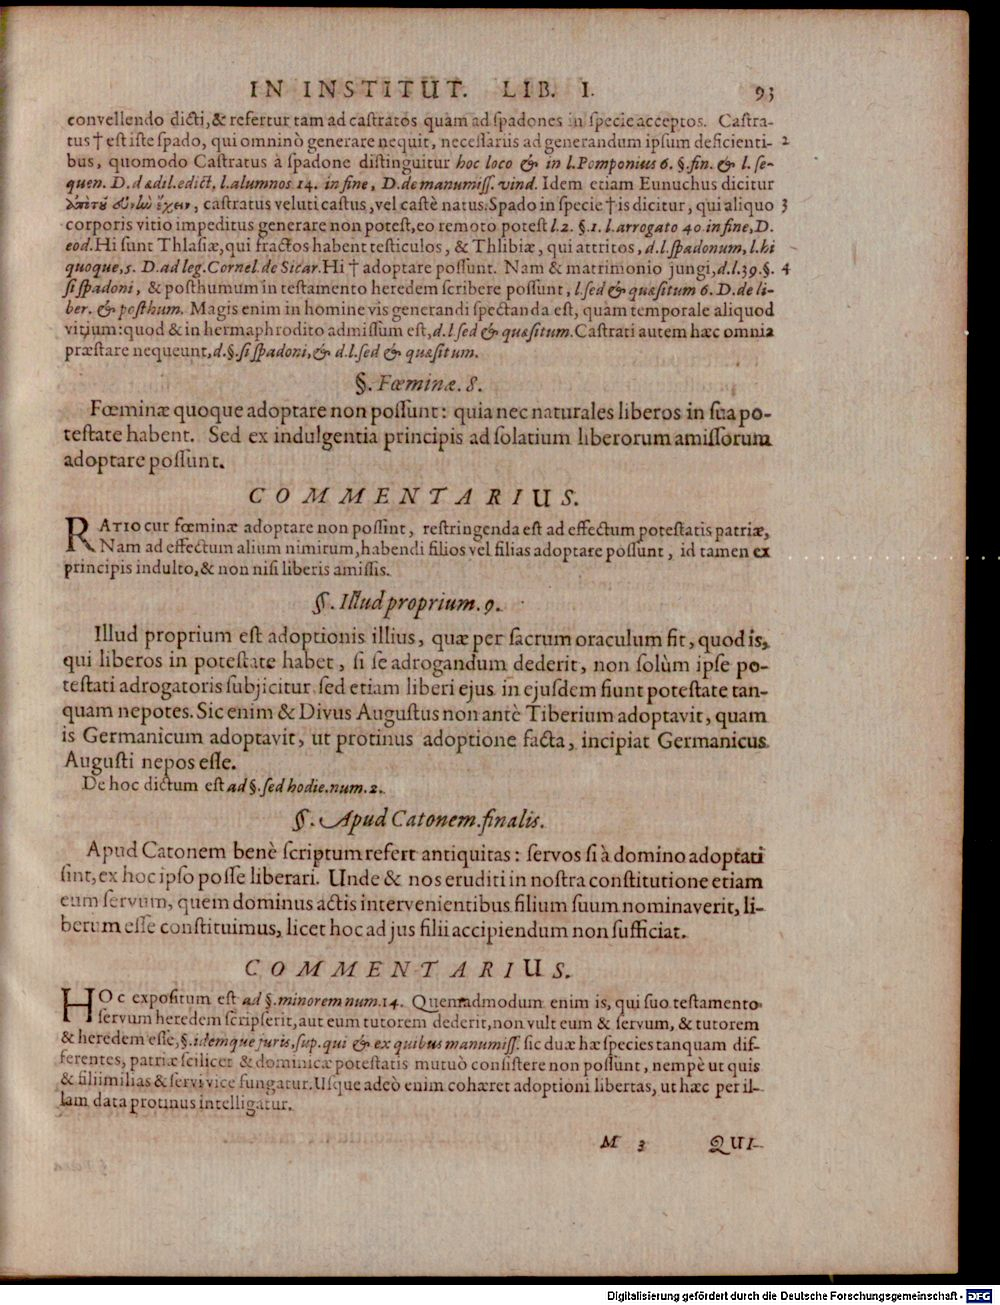 IN INSTITUT. LIB. I. 93
convellendo dicti, & refertur tam ad castratos quàm ad spadones in specie acceptos. Castra-
tus † est iste spado, qui omninò generare nequit, necessariis ad generandum ipsum deficienti- 2
bus, quomodo Castratus à spadone distinguitur hoc loco & in l. Pomponius 6. §. fin. & l. se-
quen. D. d ædil. edict, l. alumnos 14. in fine, D. de manumiss. vind. Idem etiam Eunuchus dicitur
ἔχειν, castratus veluti castus, vel castè natus. Spado in specie † is dicitur, qui aliquo 3
corporis vitio impeditus generare non potest, eo remoto potest l. 2. §. 1. l. arrogato 40 in fine, D.
eod. Hi sunt Thlasiæ, qui fractos habent testiculos, & Thlibiæ, qui attritos, d. l. spadonum, l. hi
quoque, 5. D. ad leg. Cornel. de Sicar. Hi † adoptare possunt. Nam & matrimonio jungi, d. l. 39. §. 4
si spadoni, & posthumum in testamento heredem scribere possunt, l. sed & quæsitum 6. D. de li-
ber. & posthum. Magis enim in homine vis generandi spectanda est, quàm temporale aliquod
vitium: quod & in hermaphrodito admissum est, d. l sed & quæsitum. Castrati autem hæc omnia
præstare nequeunt, d. §. si spadoni, & d. l. sed & quæsitum.
§. Fœminæ. 8.
Fœminæ quoque adoptare non possunt: quia nec naturales liberos in sua po-
testate habent. Sed ex indulgentia principis ad solatium liberorum amissorum
adoptare possunt.
COMMENTARIUS.
RATIO cur fœminæ adoptare non possint, restringenda est ad effectum potestatis patriæ,
Nam ad effectum alium nimirum, habendi filios vel filias adoptare possunt, id tamen ex
principis indulto, & non nisi liberis amissis.
§. Illud proprium. 9.
Illud proprium est adoptionis illius, quæ per sacrum oraculum fit, quod is,
qui liberos in potestate habet, si se adrogandum dederit, non solùm ipse po-
testati adrogatoris subjicitur sed etiam liberi ejus in ejusdem fiunt potestate tan-
quam nepotes. Sic enim & Divus Augustus non antè Tiberium adoptavit, quam
is Germanicum adoptavit, ut protinus adoptione facta, incipiat Germanicus
Augusti nepos esse.
De hoc dictum est ad §. sed hodie. num. 2.
§. Apud Catonem. finalis.
Apud Catonem benè scriptum refert antiquitas: servos si à domino adoptati
sint, ex hoc ipso posse liberari. Unde & nos eruditi in nostra constitutione etiam
eum servum, quem dominus actis intervenientibus filium suum nominaverit, li-
berum esse constituimus, licet hoc ad jus filii accipiendum non sufficiat.
COMMENTARIUS.
HOC expositum est ad §. minorem num. 14. Quemadmodum enim is, qui suo testamento
servum heredem scripserit, aut eum tutorem dederit, non vult eum & servum, & tutorem
& heredem esse, §. idemque juris, sup. qui & ex quibus manumiss. sic duæ hæ species tanquam dif-
ferentes, patriæ scilicet & dominicæ potestatis mutuò consistere non possunt, nempè ut quis
& filiimilias & servi vice fungatur. Usque adeò enim cohæret adoptioni libertas, ut hæc per il-
lam data protinus intelligatur.
M 3 QUI-
Digitalisierung gefördert durch die Deutsche Forschungsgemeinschaft - DFG